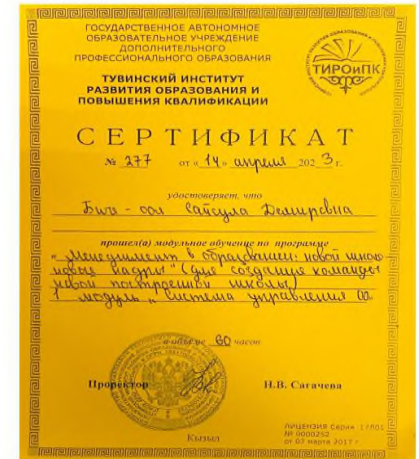 ГОСУДАРСТВЕННОЕ АВТОНОМНОЕ
ОБРАЗОВАТЕЛЬНОЕ УЧРЕЖДЕНИЕ
ДОПОЛНИТЕЛЬНОГО
ПРОФЕССИОНАЛЬНОГО ОБРАЗОВАНИЯ
ТИРОиПК
ТУВИНСКИЙ ИНСТИТУТ
РАЗВИТИЯ ОБРАЗОВАНИЯ И
ПОВЫШЕНИЯ КВАЛИФИКАЦИИ
СЕРТИФИКАТ
№ 277 от « 14 » апреля 2023 г.
удостоверяет, что
Демировна
прошел(а) модульное обучение по программе
"Менеджмент в образовании: новой школе
новые кадры" (для создания команды
новой построенной школы)
1 модуль "Система управления ОО"
в объеме 60 часов
Проректор Н.В. Сагачева
Кызыл
ЛИЦЕНЗИЯ Серия 17Л01
№ 0000252
от 07 марта 2017 г.